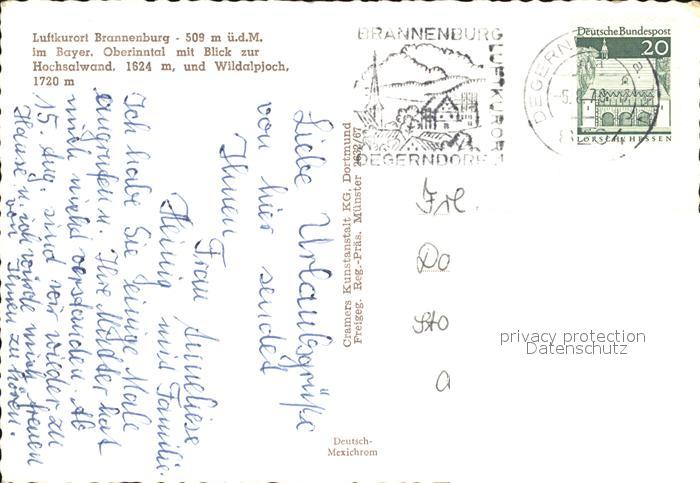 Luftkurort Brannenburg - 509 m ü.d.M.
im Bayer. Oberinntal mit Blick zur
Hochsalwand, 1624 m, und Wildalpjoch,
1720 m
BRANNENBURG
LUFTKURORT
DEGERNDORF
DEGERN
-5.
a
Deutsche Bundespost
20
LORSCH/HESSEN
Liebe Urlaubsgrüße
von hier sendet
Ihnen
Frau Anneliese
Heinig mit Familie.
Ich habe Sie einige Male
angerufen. Ihre Mutter hat
mich nicht verstanden. Ab
15. Aug. sind wir wieder zu
Hause u. ich würde mich freuen
von Ihnen zu hören.
Cramers Kunstanstalt KG, Dortmund
Freigeg. Reg.-Präs. Münster 2632/67
Frl.
Do
Sto
a
privacy protection
Datenschutz
Deutsch-
Mexichrom